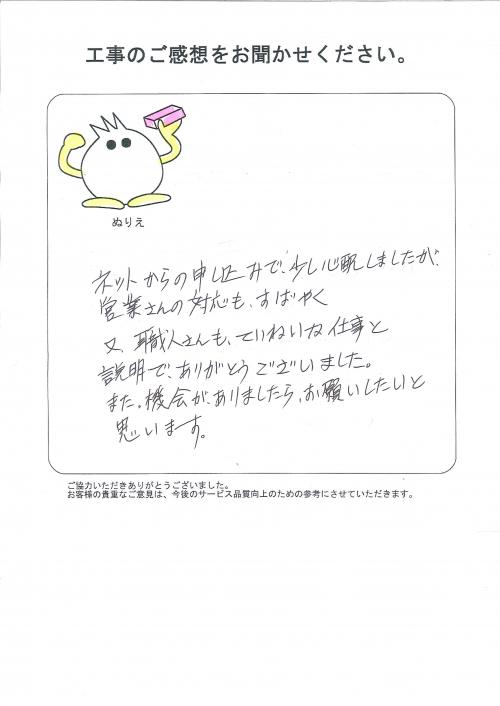 工事のご感想をお聞かせください。
ぬりえ
ネットからの申し込みで、少し心配しましたが、
営業さんの対応も、すばやく
又、職人さんも、ていねいな仕事と
説明で、ありがとうございました。
また、機会がありましたら、お願いしたいと
思います。
ご協力いただきありがとうございました。
お客様の貴重なご意見は、今後のサービス品質向上のための参考にさせていただきます。